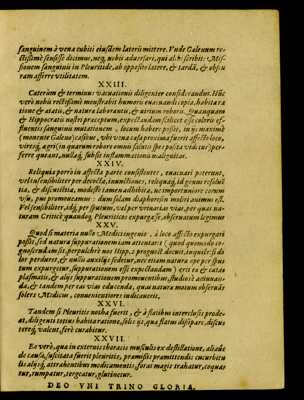 sanguinem à vena cubiti eiusdem lateris mittere. Vnde Galenum re-
ctissimè sensisse dicimus, neq́; nobis aduersari, qui alibi scribit: Mis-
sionem sanguinis in Pleuritide, ab opposito latere, & tardā, & obscu
ram afferre vtilitatem.
XXIII.
Caeterùm & terminus vacuationis diligenter considerandus. Hūc
verò nobis rectissimè monstrabit humoris euacuandi copia, habita ra
tione & aetatis, & natura laborantis, & virium roboris. Quanquam
& Hippocratis nostri praeceptum, expectandam scilicet esse coloris ef-
fluentis sanguinis mutationem, locum habere possit, in ijs maximè
(monente Galeno) casibus, vbi vena tali proxima fuerit affecto loco,
viresq́; aegri (in quarum robore omnis salutis spes posita est) vacuationem per-
ferre queant, nullaq́; subsit inflammationis malignitas.
XXIV.
Reliquia porrò in affecta parte consistentes, euacuari poterunt,
vel insensibiliter per decocta, inunctiones, reliquaq́; id genus resoluē
tia, & discutientia, modestè tamen adhibita, nec importuniore eorum
vsu, pus promoueamus: dum solam diaphoresin moliri animus est.
Vel sensibiliter, idq́; per sputum, vel per vrinariae vias, per quas na-
turam Criticè quandoq́; Pleuriticos expurgasse, obseruatum legimus
XXV.
Quod si materia nullo Medico ingenio, à loco affecto expurgari
possit, sed natura suppurationem iam attentarit (quod quomodo co-
gnoscendum sit, perpulchrè nos Hipp. 2 prognost. docuit, inquiēs: si do
lor perduret, & nullis auxilijs sedetur, nec etiam natura ope per spu
tum expurgetur, suppurationem esse expectandam) erit ea & cata
plasmatis, & alijs suppurationem promouentibus, studiosè adiuuan-
da, & tandem per eas vias educenda, quas natura motum obseruās
solers Medicus, conuenientiores indicauerit.
XXVI.
Tandem si Pleuritis notha fuerit, & à flatibus interclusis prode-
at, diligenti totius habita ratione, solis ijs, quae flatum dissipare, discu-
tereq́; valent, ferè curabitur.
XXVII.
Ea verò, quae in externis thoracis musculis ex destillatione, aliaue
de causa, suscitata fuerit pleuritis, praemissis praemittendis cucurbitu
lis alijsq́; attrahentibus medicamentis foras magis trahatur, coquatur,
rumpatur, tergeatur, glutinetur.
DEO VNI TRINO GLORIA.